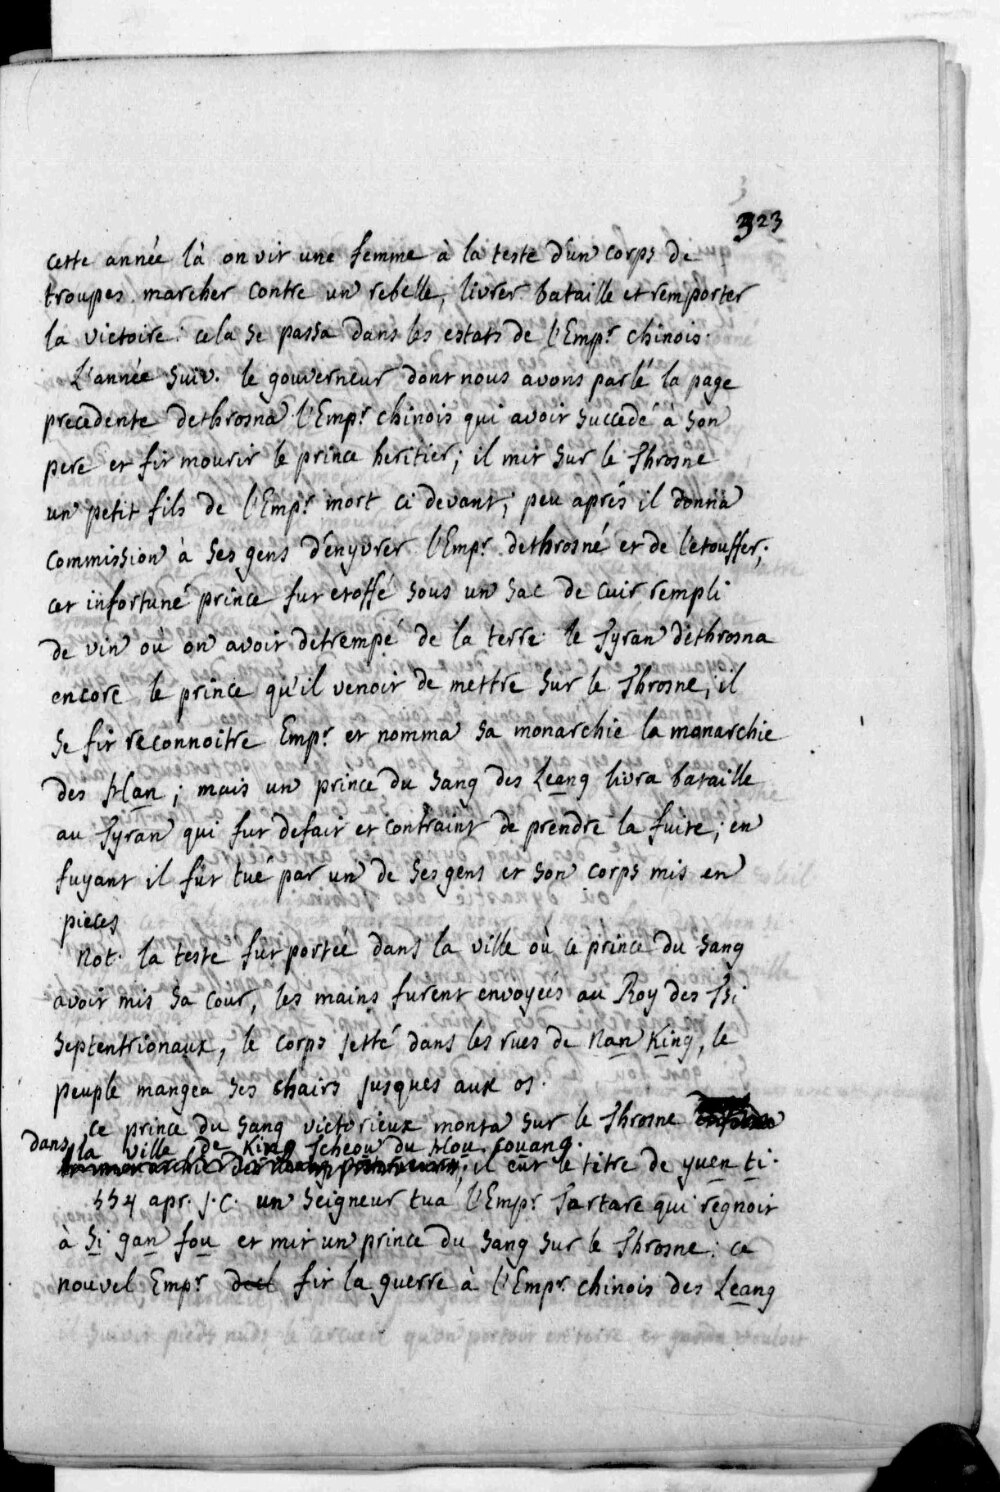 323
cette année là on vit une femme à la teste d'un corps de
troupes marcher contre un rebelle, livrer bataille et remporter
la victoire: cela se passa dans les estats de l'Emp.r chinois.
L'année suiv. le gouverneur dont nous avons parlé la page
precedente dethrosna l'Emp.r chinois qui avoit succedé à son
pere et fit mourir le prince heritier; il mit sur le Throsne
un petit fils de l'Emp.r mort ci devant; peu aprés il donna
commission à ses gens d'enyvrer l'Emp.r dethrosné et de l'etouffer;
cet infortuné prince fut etoffé sous un sac de cuir rempli
de vin où on avoit detrempé de la terre le Tyran dethrosna
encore le prince qu'il venoit de mettre sur le Throsne, il
se fit reconnoitre Emp.r et nomma sa monarchie la monarchie
des Han; mais un prince du sang des Leang livra bataille
au Tyran qui fut defait et contraint de prendre la fuite; en
fuyant il fut tué par un de ses gens et son corps mis en
pieces
Not. la teste fut portée dans la ville où ce prince du sang
avoit mis sa cour, les mains furent envoyées au Roy des Tsi
septentrionaux, le corps jetté dans les rues de Nan King, le
peuple mangea ses chairs jusques aux os.
ce prince du sang victorieux monta sur le Throsne
dans la ville De King Tcheou du Hou couang.
il eut le titre de yuen ti.
554 apr. J.C. un seigneur tua l'Emp.r Tartare qui regnoit
à Si gan fou et mit un prince du sang sur le Throsne: ce
nouvel Emp.r fit la guerre à l'Emp.r chinois des Leang